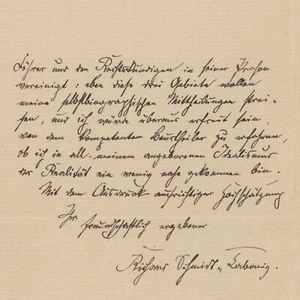 Lehrer und den Rechtskundigen in seiner Person
vereinigt: eben diese drei Gebiete wollen
meine selbstbiographischen Mittheilungen strei-
fen, und ich würde überaus erfreut sein,
von dem kompetenten Beurtheiler zu erfahren,
ob ich in all meinem angeborenen Idealismus
der Realität ein wenig nahe gekommen bin.
Mit dem Ausdruck aufrichtiger Hochschätzung
Ihr
freundschaftlich ergebener
Richard Schmidt-Cabanis.